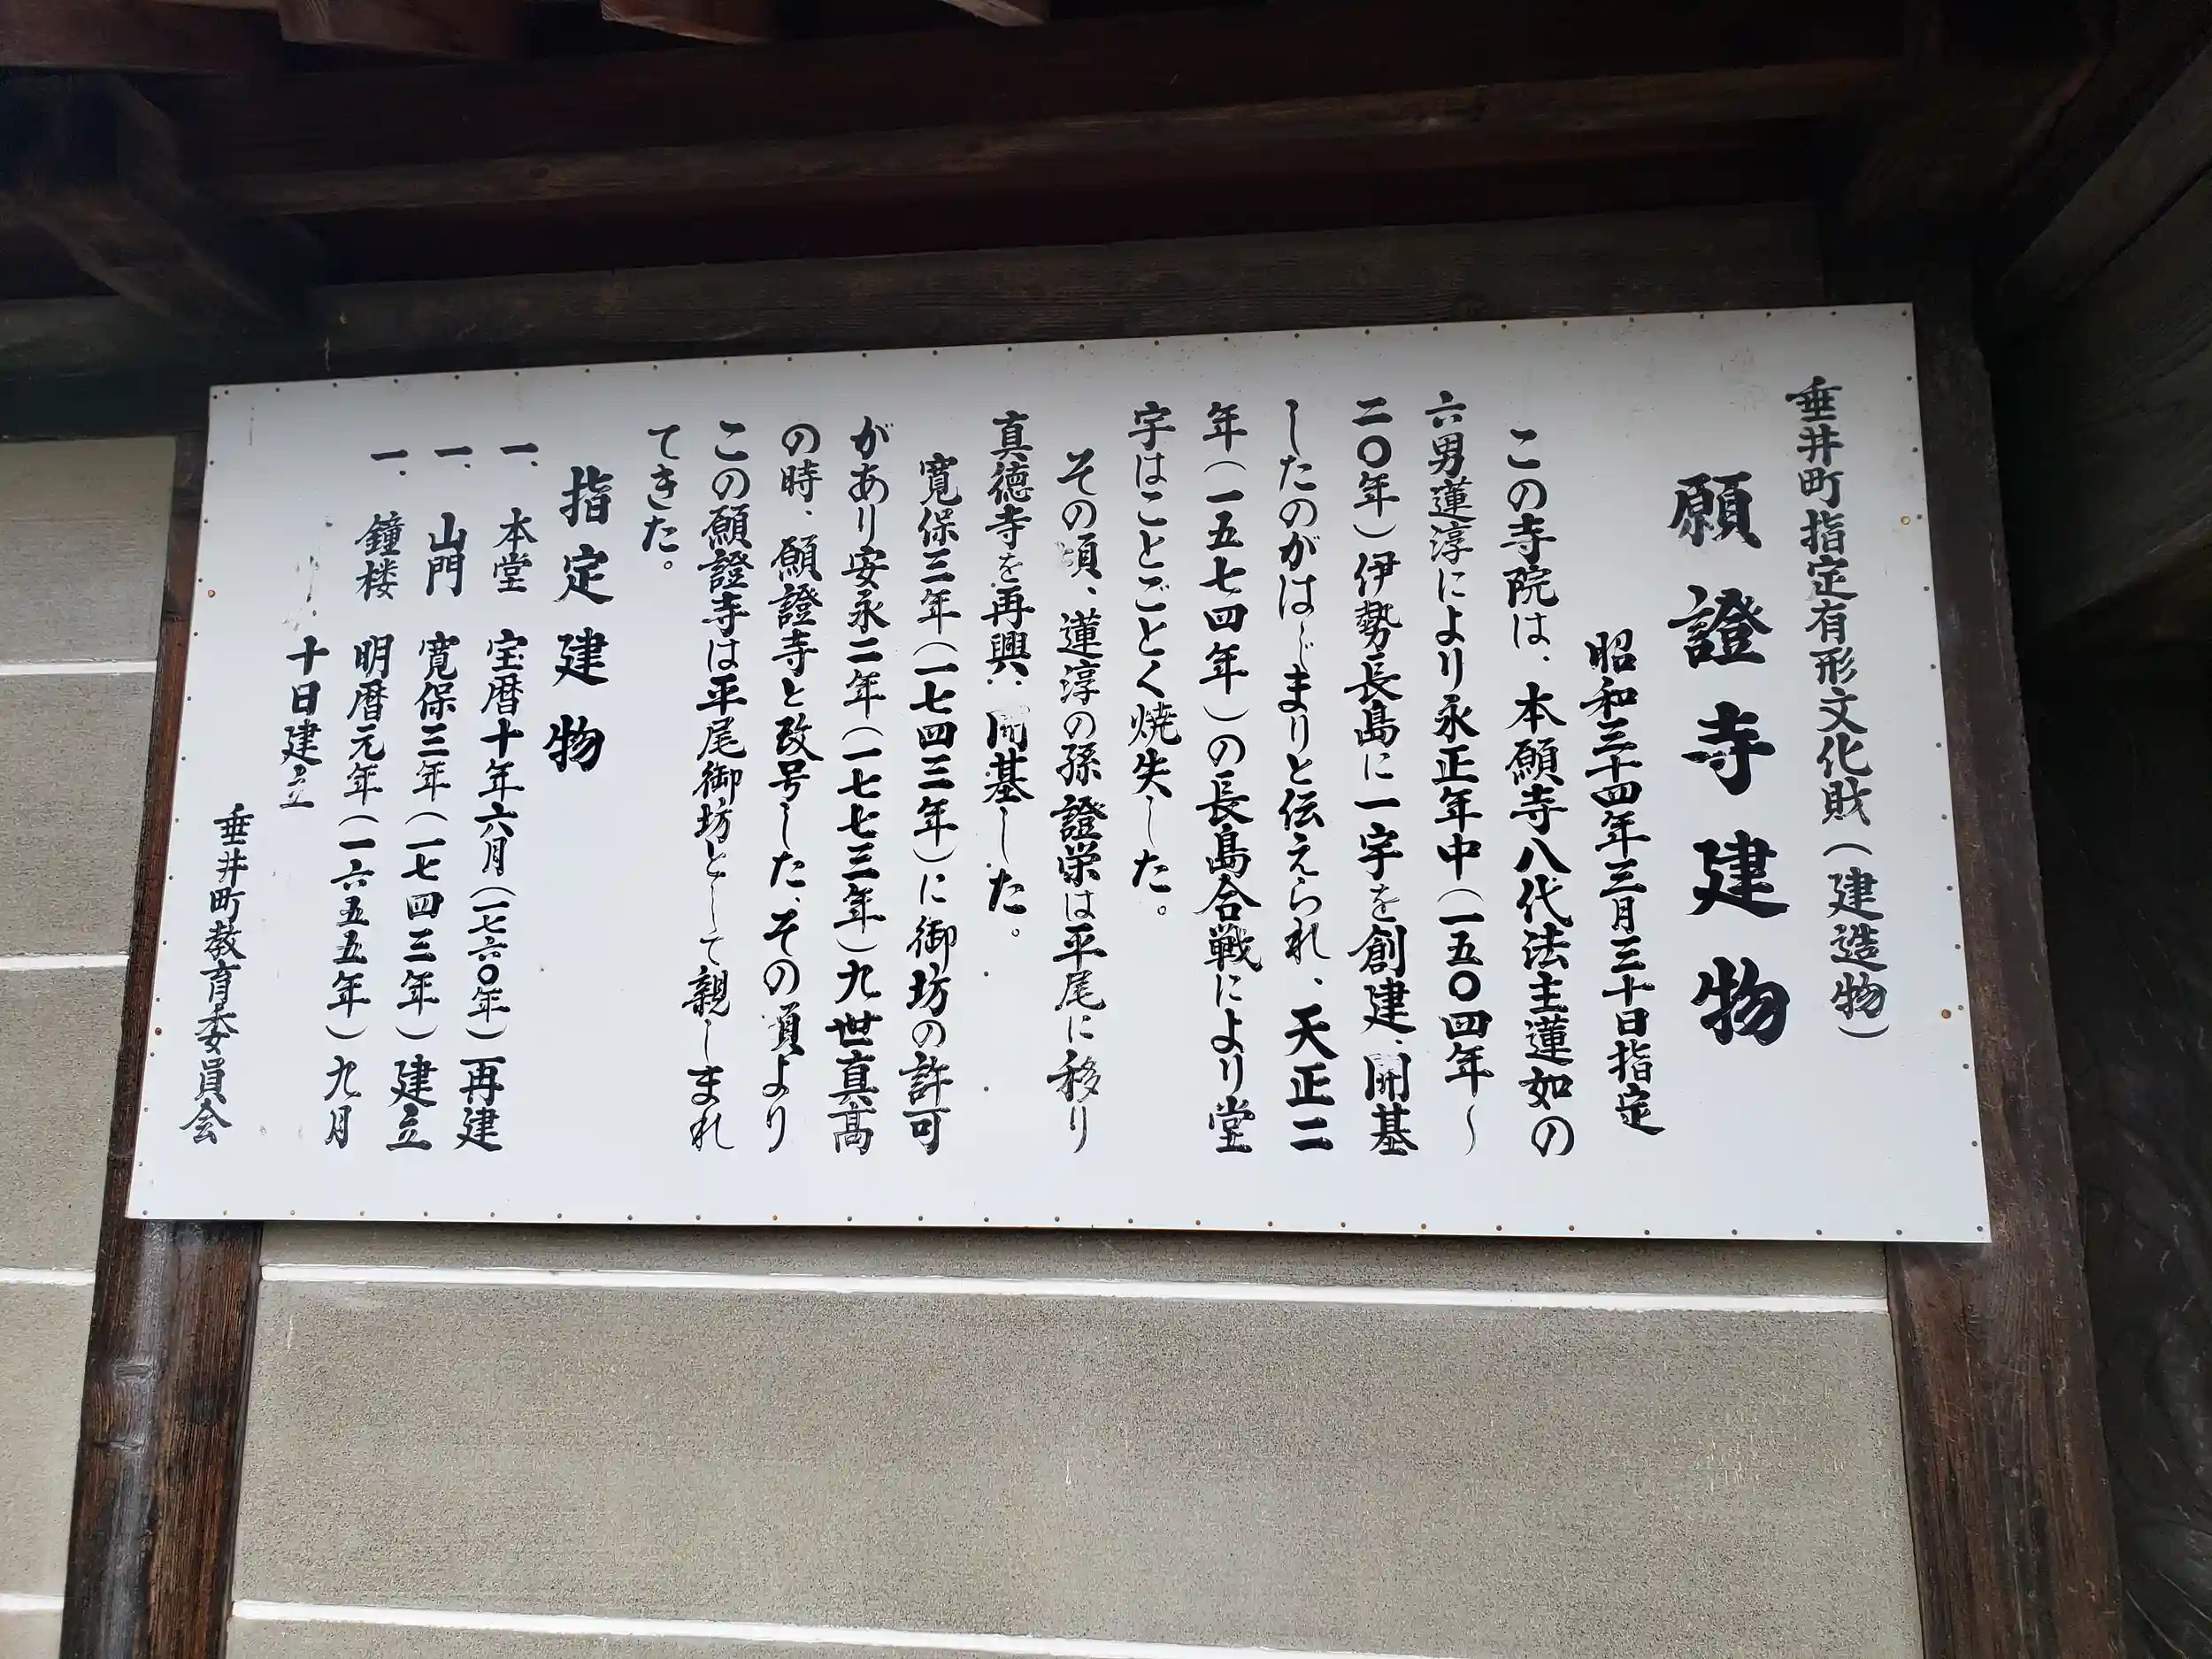 垂井町指定有形文化財(建造物)
願證寺建物
昭和三十四年三月三十日指定
この寺院は、本願寺八代法主蓮如の
六男蓮淳により永正年中(一五〇四年～
二〇年)伊勢長島に一宇を創建、開基
したのがはじまりと伝えられ、天正二
年(一五七四年)の長島合戦により堂
宇はことごとく焼失した。
その頃、蓮淳の孫證栄は平尾に移り
真徳寺を再興、開基した。
寛保三年(一七四三年)に御坊の許可
があり安永二年(一七七三年)九世真高
の時、願證寺と改号した、その頃より
この願證寺は平尾御坊として親しまれ
てきた。
指定建物
一、本堂 宝暦十年六月(一七六〇年)再建
一、山門 寛保三年(一七四三年)建立
一、鐘楼 明暦元年(一六五五年)九月
十日建立
垂井町教育委員会